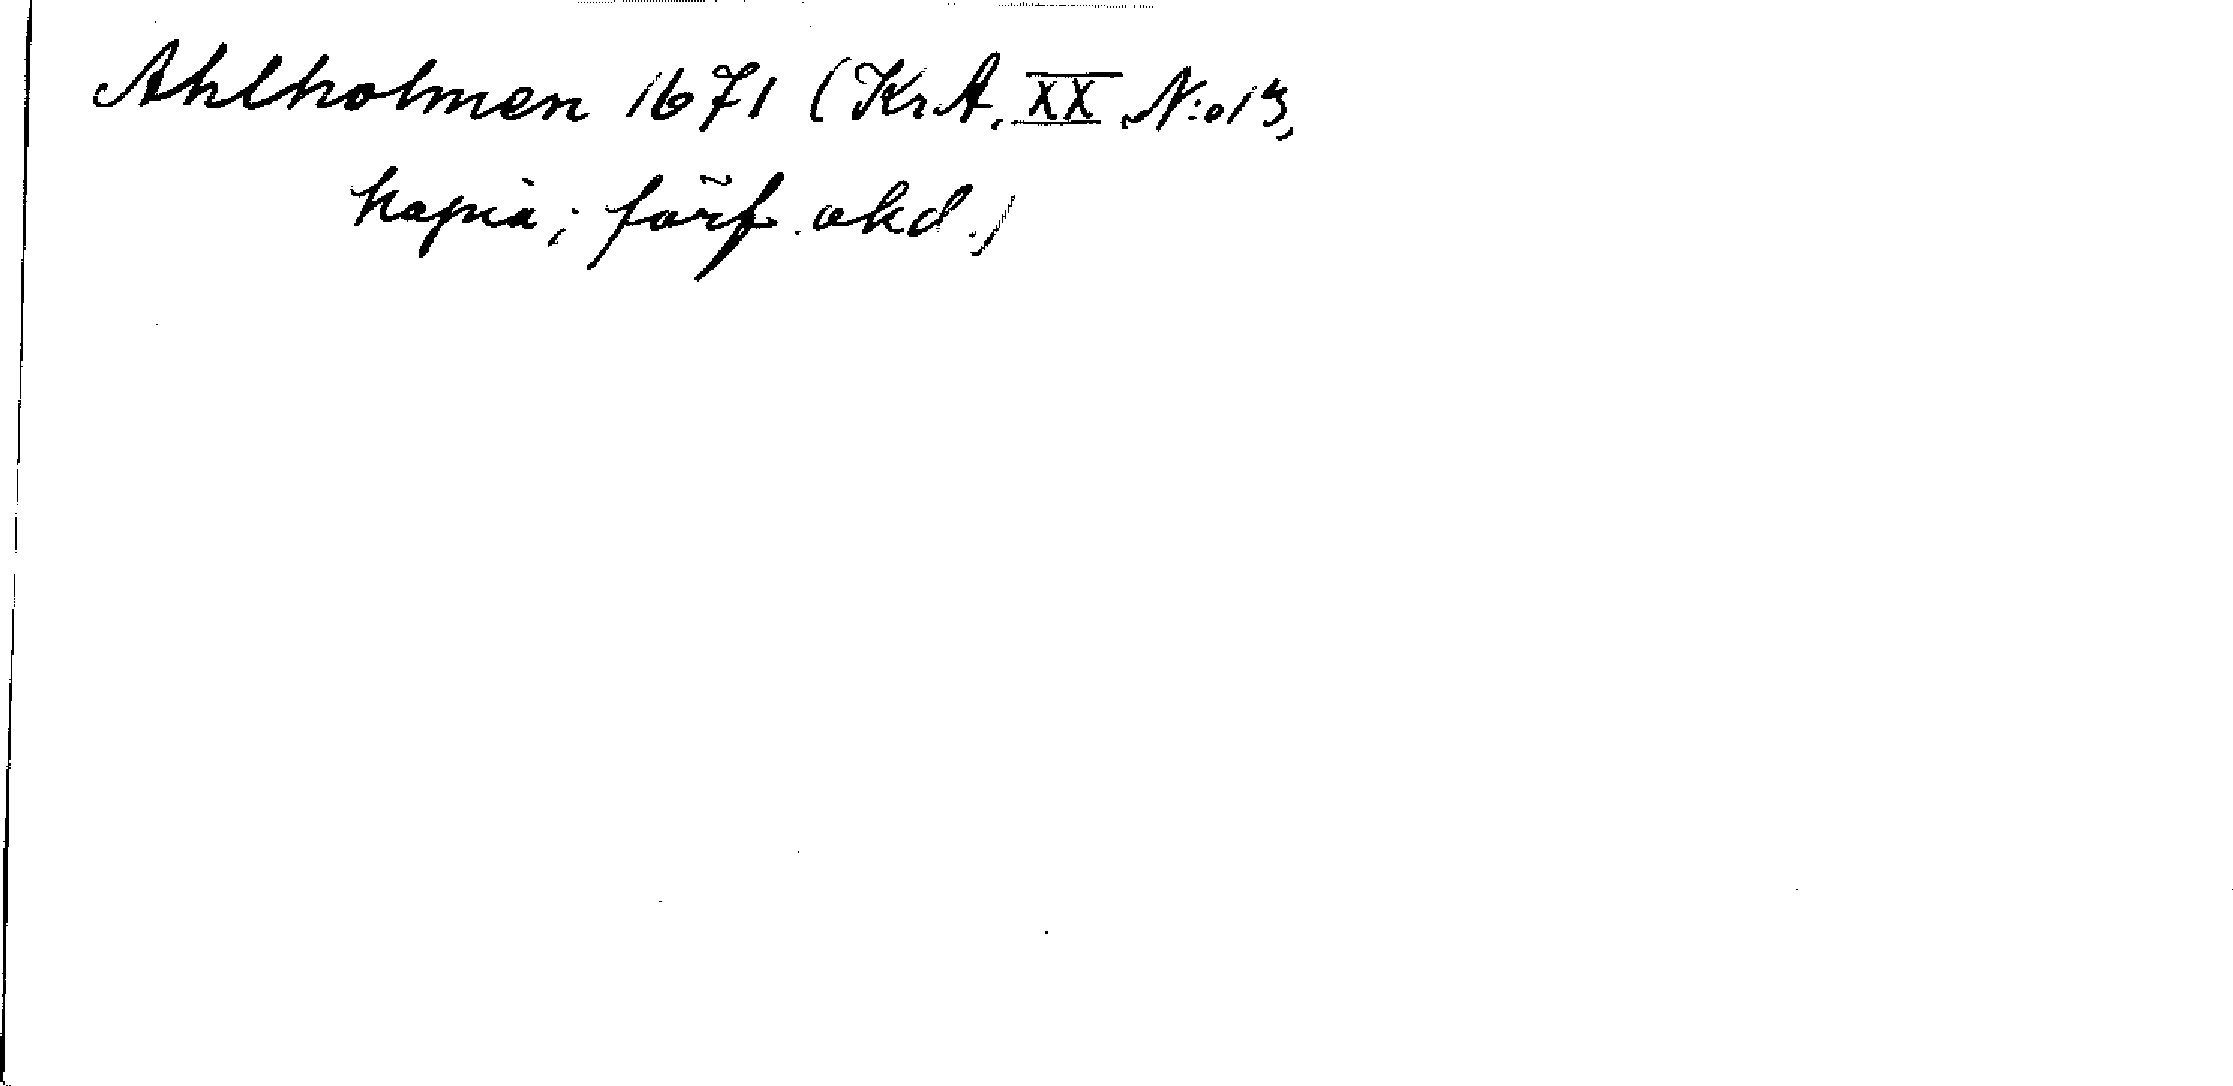 Ahlholmen 1671 (KrA, XX N:o 13,
kopia; förf. okd.)